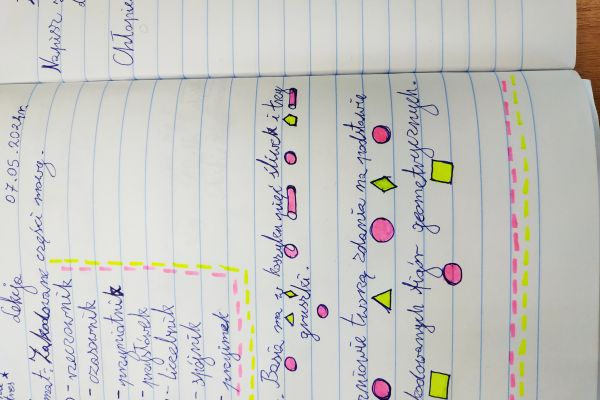 Napisz
Chłopie
Lekcja 07.05.2024r.
mat: Zakodowane części mowy.
- rzeczownik
- czasownik
- przymiotnik
- przysłówek
- liczebnik
- spójnik
- przyimek
Basia ma w koszyku pięć śliwek i trzy
gruszki.
zniowie tworzą zdania na podstawie
kodowanych figur geometrycznych.